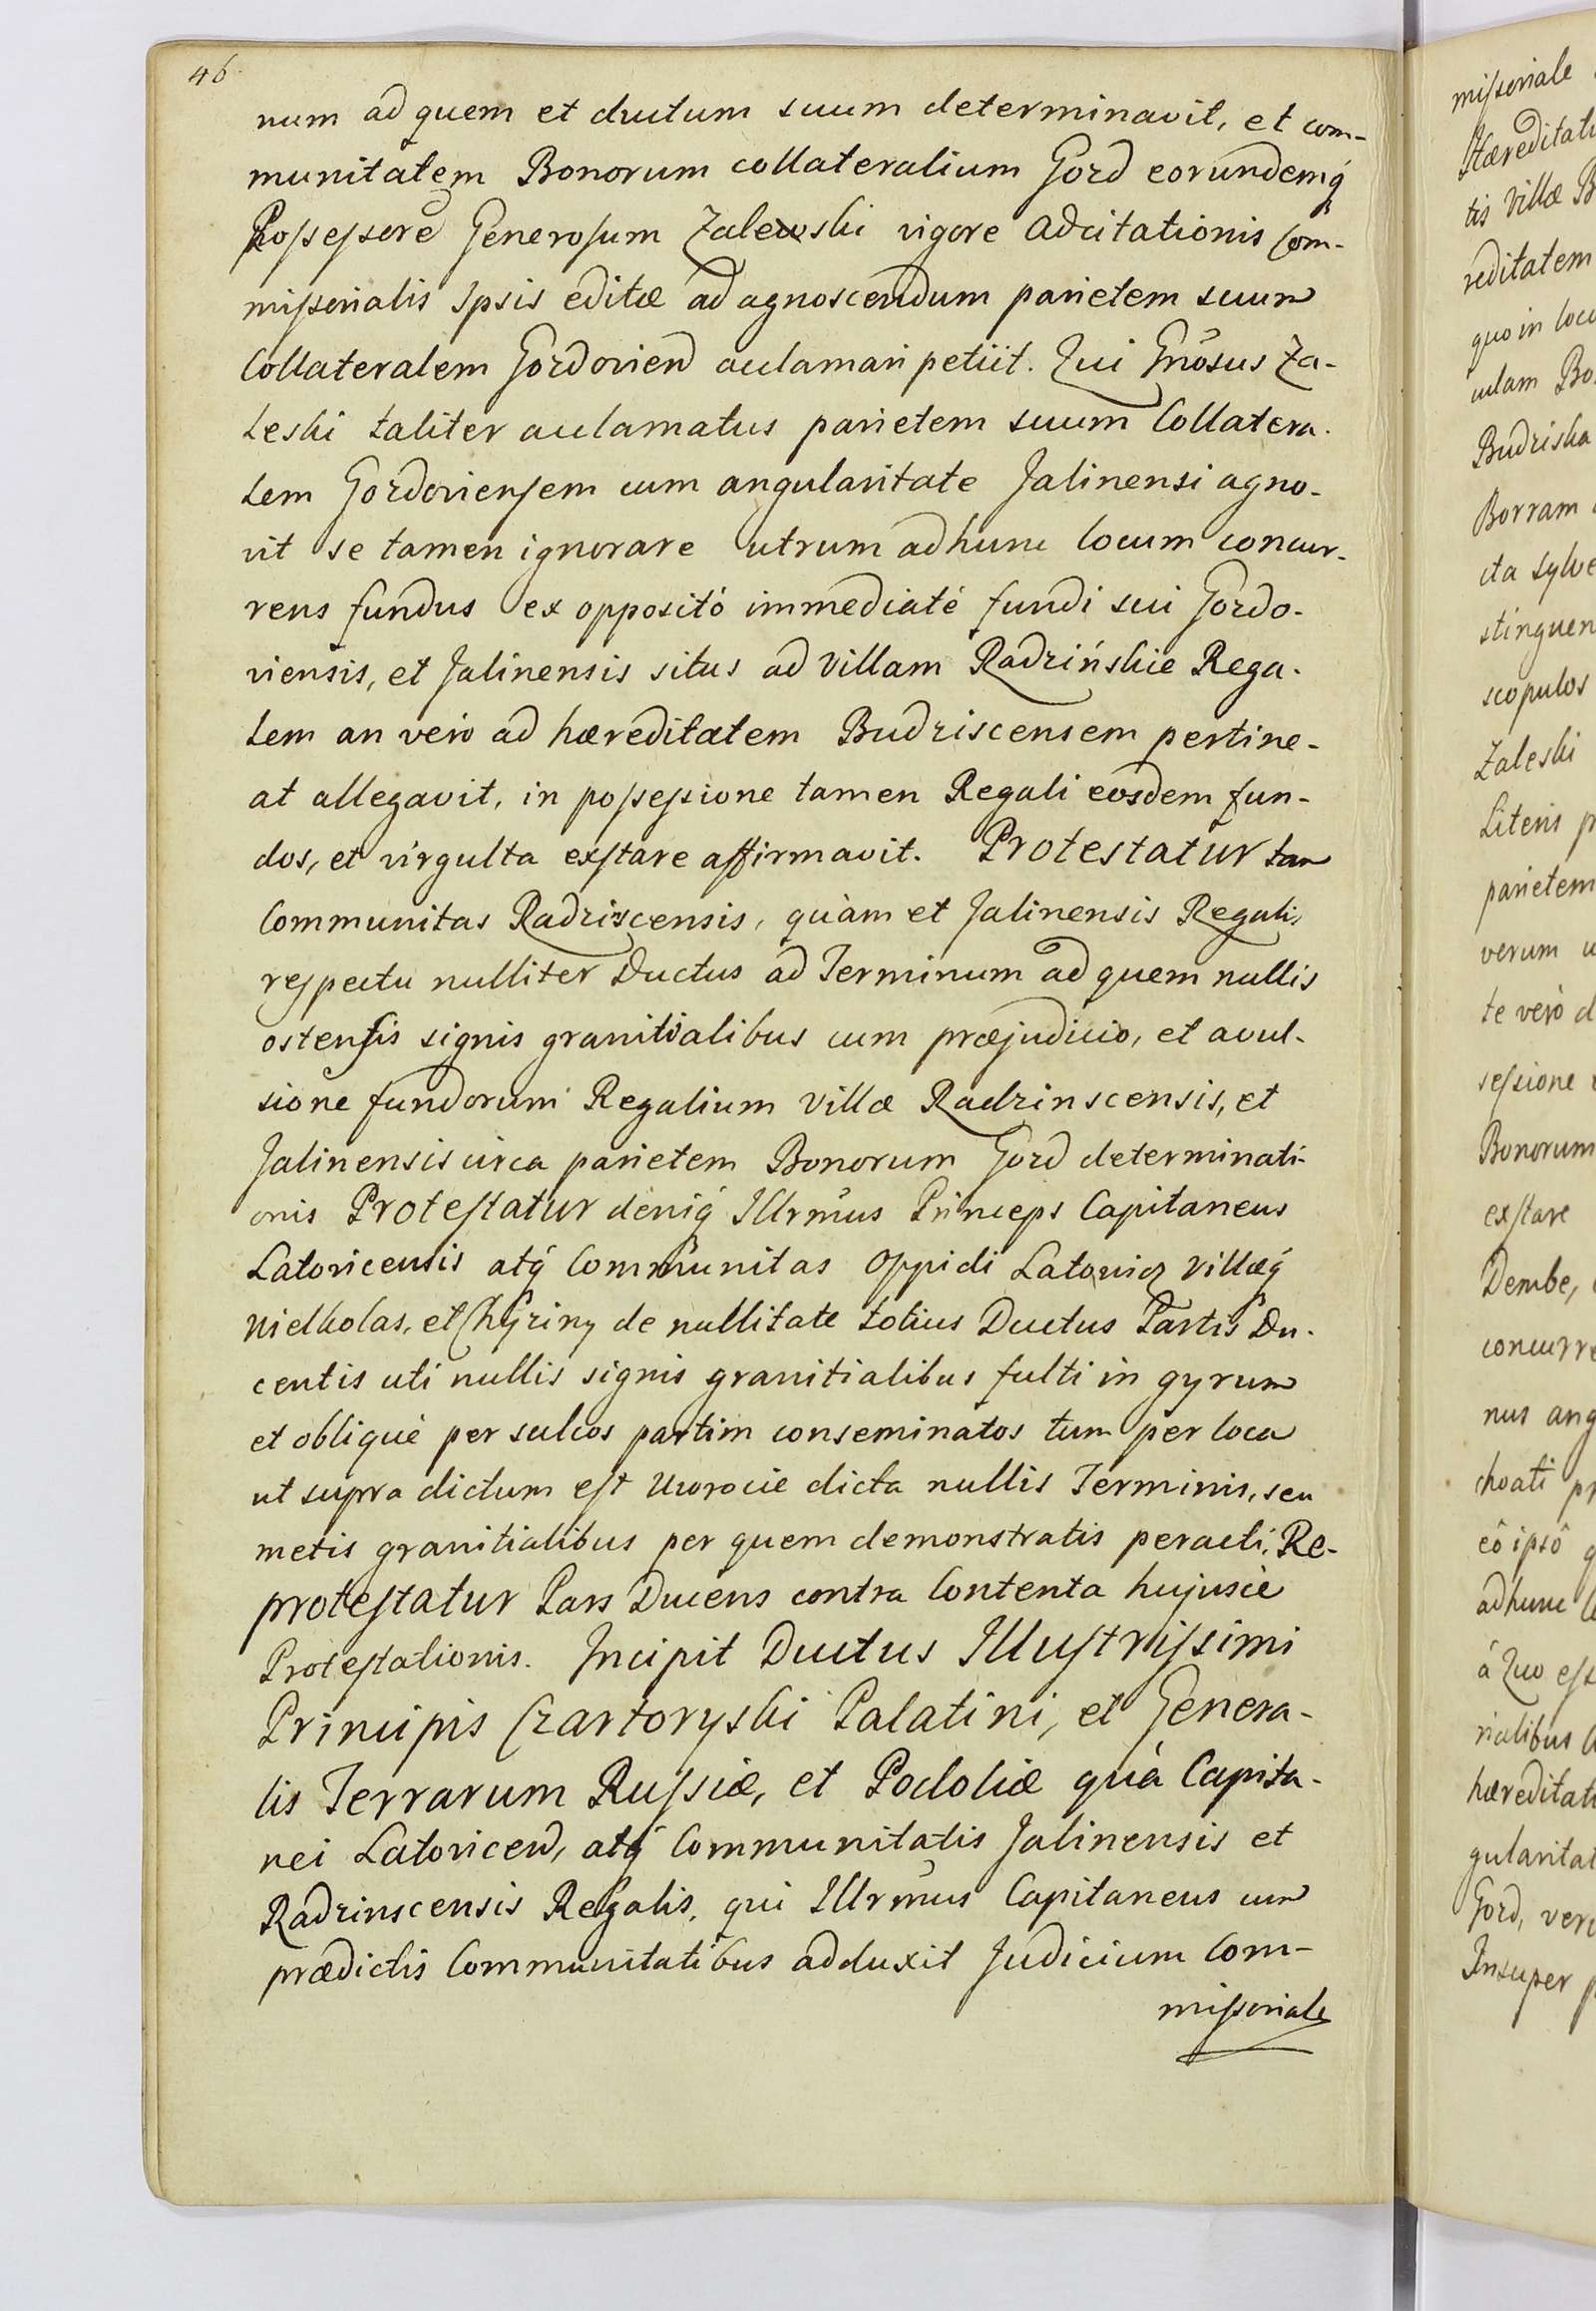 46
num ad quem et ductum suum determinavit, et com-
munitatem Bonorum collateralium Gord eorundemq́
Possessorē Generosum Zalewski vigore Adcitationis Com-
missorialis Ipsis editæ ad agnoscendum parietem suum
Collateralem Gordovien acclamari petiit. Qui Gnōsus Za-
leski taliter acclamatus parietem suum Collatera-
lem Gordoviensem cum angularitate Jalinensi agno-
vit se tamen ignorare utrum ad hunc locum concur-
rens fundus ex oppositò immediatè fundi sui Gordo-
viensis, et Jalinensis situs ad Villam Radzińskie Rega-
lem an verò ad hæreditatem Budziscensem pertine-
at allegavit, in possessione tamen Regali eosdem fun-
dos, et virgulta exstare affirmavit. Protestatur tam
Communitas Radziscensis, quàm et Jalinensis Regalis
respectu nulliter Ductus ad Terminum ad quem nullis
ostensis signis granitialibus cum præjudicio, et avul-
sione fundorum Regalium Villæ Radzinscensis, et
Jalinensis circa parietem Bonorum Gord determinati-
onis Protestatur deniq́ Illrm̃us Princeps Capitaneus
Latovicensis atq́ Communitas Oppidi Latovicz Villæq́
Wielholas, et Chyziny de nullitate totius Ductus Partis Du-
centis uti nullis signis granitialibus fulti in gyrum
et obliquè per sulcos partim conseminatos tum per loca
ut supra dictum est Uwrocie dicta nullis Terminis, seu
metis granitialibus per quem demonstratis peracti. Re-
protestatur Pars Ducens contra Contenta hujusce
Protestationis. Incipit Ductus Illustrissimi
Principis Czartoryski Palatini, et Genera-
lis Terrarum Russiæ, et Podoliæ quà Capita-
nei Latovicen, atq́ Communitatis Jalinensis et
Radzinscensis Regalis, qui Illrm̃us Capitaneus cum
prædictis Communitatibus adduxit Judicium Com-
missoriale
missoriale
Hæreditati
tis Villæ B
reditatem
quo in loco
culam Bo
Budziska
Borram
cta sylve
stinguen
scopulos
Zaleski
Literis p
parietem
verum u
te verò d
sessione
Bonorum
exstare
Dembe,
concurre
nus ang
choati pr
eô ipsô q
ad hunc
à Quo est
rialibus
hæreditat
gularitat
Gord, vero
Insuper p